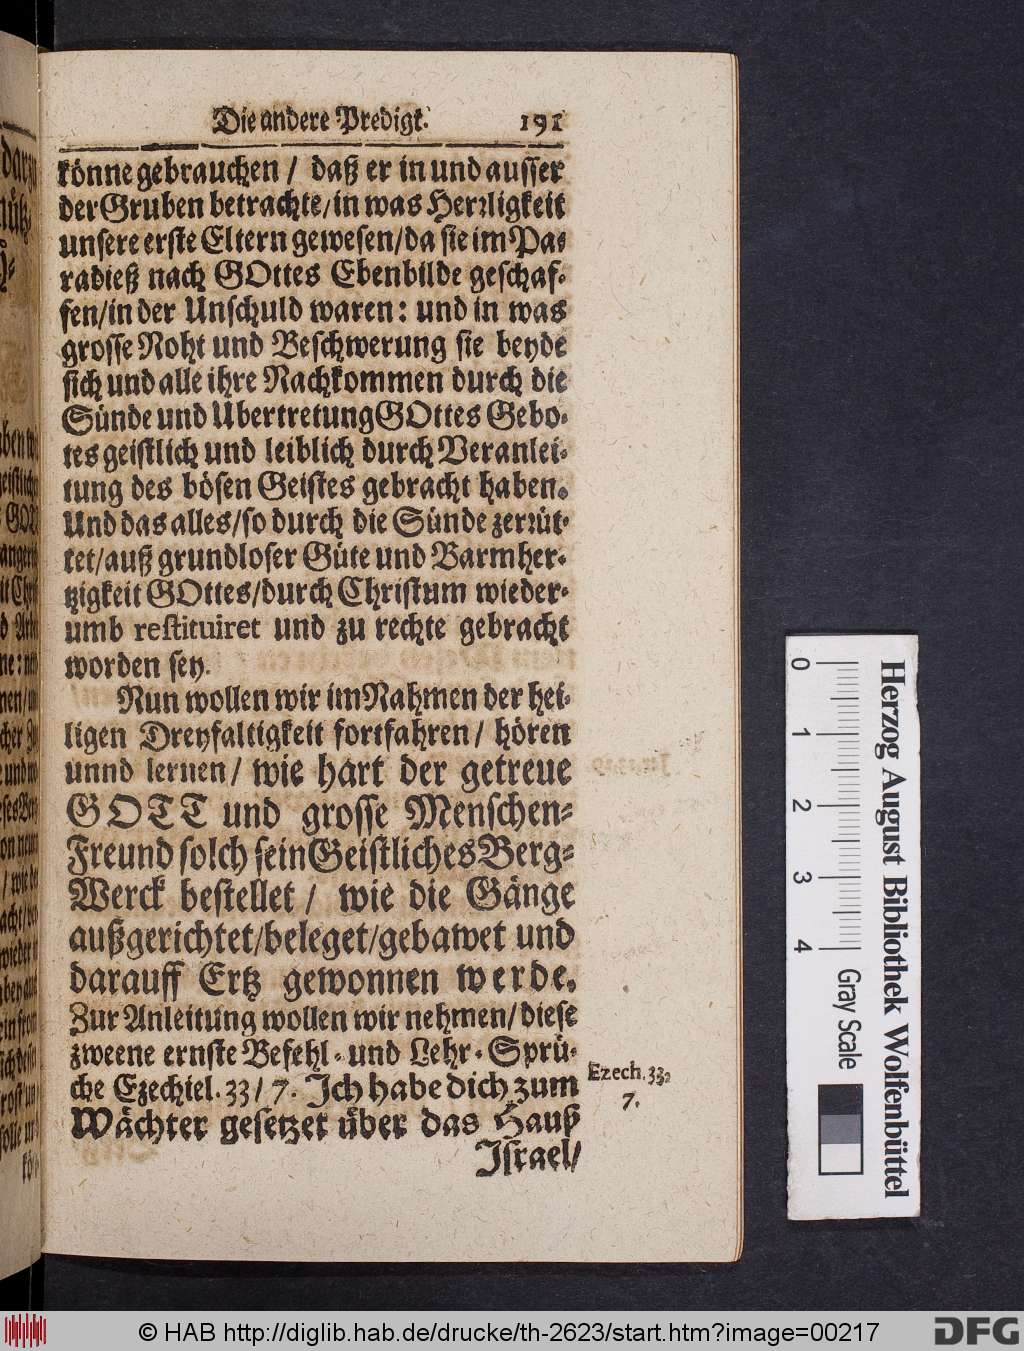 Die andere Predigt. 191
könne gebrauchen / daß er in und ausser
der Gruben betrachte / in was Herrligkeit
unsere erste Eltern gewesen / da sie im Pa-
radieß nach GOttes Ebenbilde geschaf-
fen / in der Unschuld waren: und in was
grosse Noht und Beschwerung sie beyde
sich und alle ihre Nachkommen durch die
Sünde und Ubertretung GOttes Gebo-
tes geistlich und leiblich durch Veranlei-
tung des bösen Geistes gebracht haben.
Und das alles / so durch die Sünde zerrüt-
tet / auß grundloser Güte und Barmher-
tzigkeit GOttes / durch Christum wieder-
umb restituiret und zu rechte gebracht
worden sey.
Nun wollen wir im Nahmen der hei-
ligen Dreyfaltigkeit fortfahren / hören
unnd lernen / wie hart der getreue
GOTT und grosse Menschen-
Freund solch sein Geistliches Berg-
Werck bestellet / wie die Gänge
außgerichtet / beleget / gebawet und
darauff Ertz gewonnen werde.
Zur Anleitung wollen wir nehmen / diese
zweene ernste Befehl- und Lehr-Sprü-
che Ezechiel. 33 / 7. Ich habe dich zum
Wächter gesetzet über das Hauß
Israel /
Ezech. 33,
7.
Herzog August Bibliothek Wolfenbüttel
0 1 2 3 4
Gray Scale
© HAB http://diglib.hab.de/drucke/th-2623/start.htm?image=00217
DFG